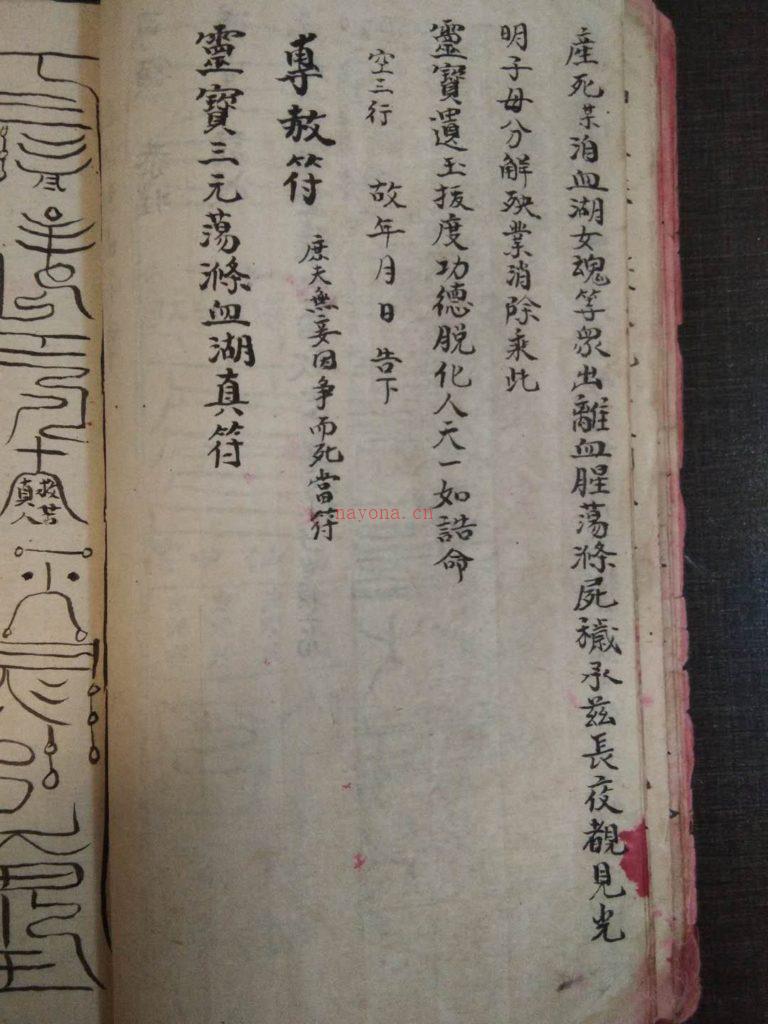 產死某洎血湖女魂等衆出離血腥蕩滌屍穢承茲長夜覩見光
明子母分解殃業消除乘此
靈寶遺玉拔度功德脫化人天一如誥命
空三行 故年月日告下
專赦符 庶夫無妄因爭而死當符
靈寶三元蕩滌血湖真符
救苦
真人
nayona.cn